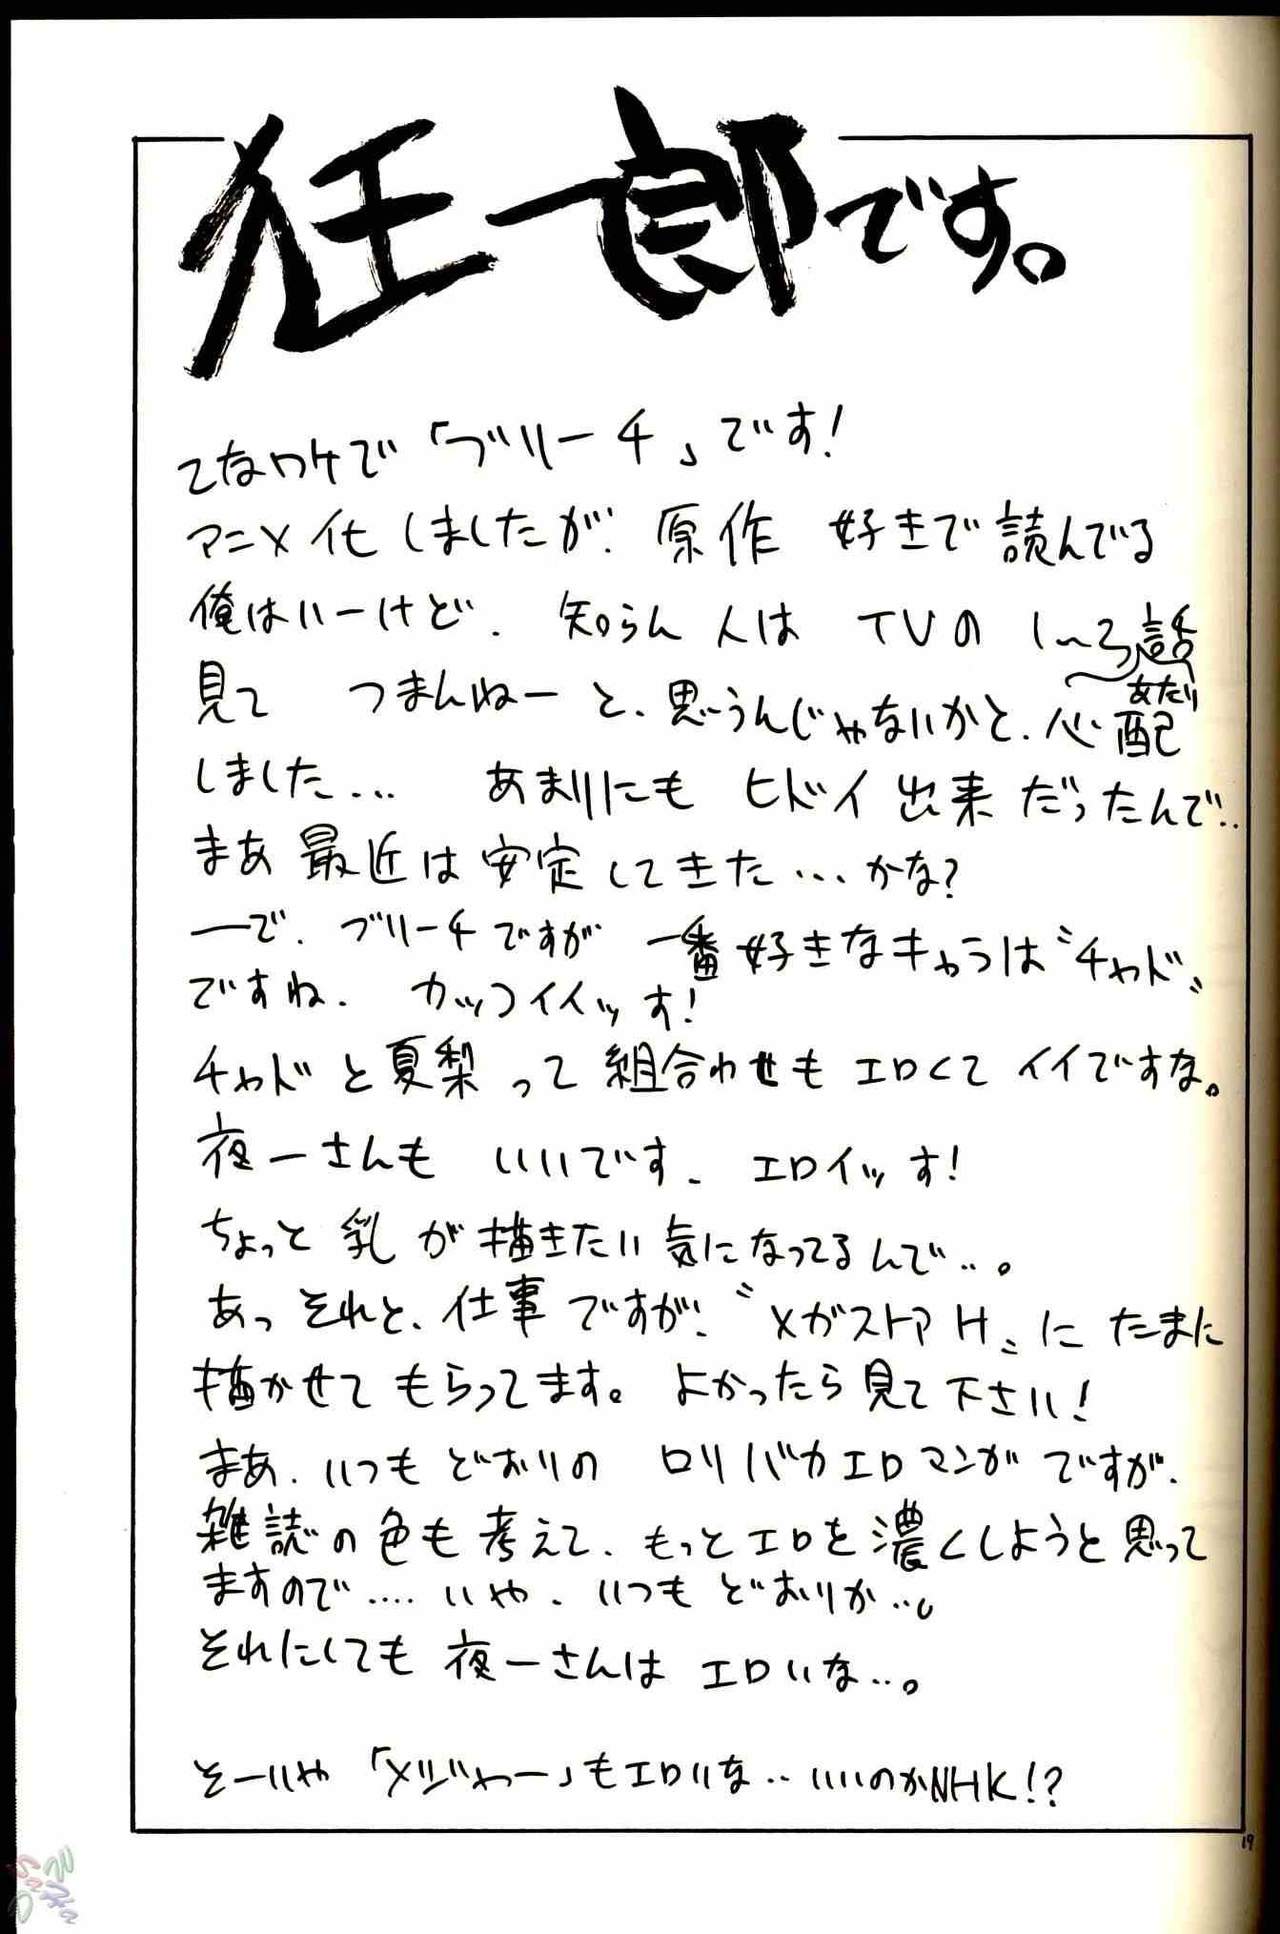 狂一郎です。
てなワケで「ブリーチ」です!
アニメ化しましたが、原作 好きで読んでる
俺はいーけど、知らん人は TVの1〜3話あたり
見て つまんねーと、思うんじゃないかと、心配
しました… あまりにもヒドイ出来だったんで‥
まあ最近は安定してきた…かな?
―で、ブリーチですが 一番好きなキャラは〝チャド〟
ですね、カッコイイッす!
チャドと夏梨って組合わせもエロくてイイですな。
夜一さんも いいです、エロイッす!
ちょっと乳が描きたい気になってるんで‥。
あっそれと、仕事ですが、〝メガストアH〟にたまに
描かせてもらってます。よかったら見て下さい!
まあ、いつもどおりの ロリバカエロマンガですが、
雑誌の色も考えて、もっとエロを濃くしようと思って
ますので‥‥いや、いつもどおりか‥。
それにしても夜一さんはエロいな‥。
そーいや「メジャー」もエロいな‥いいのかNHK!?
19